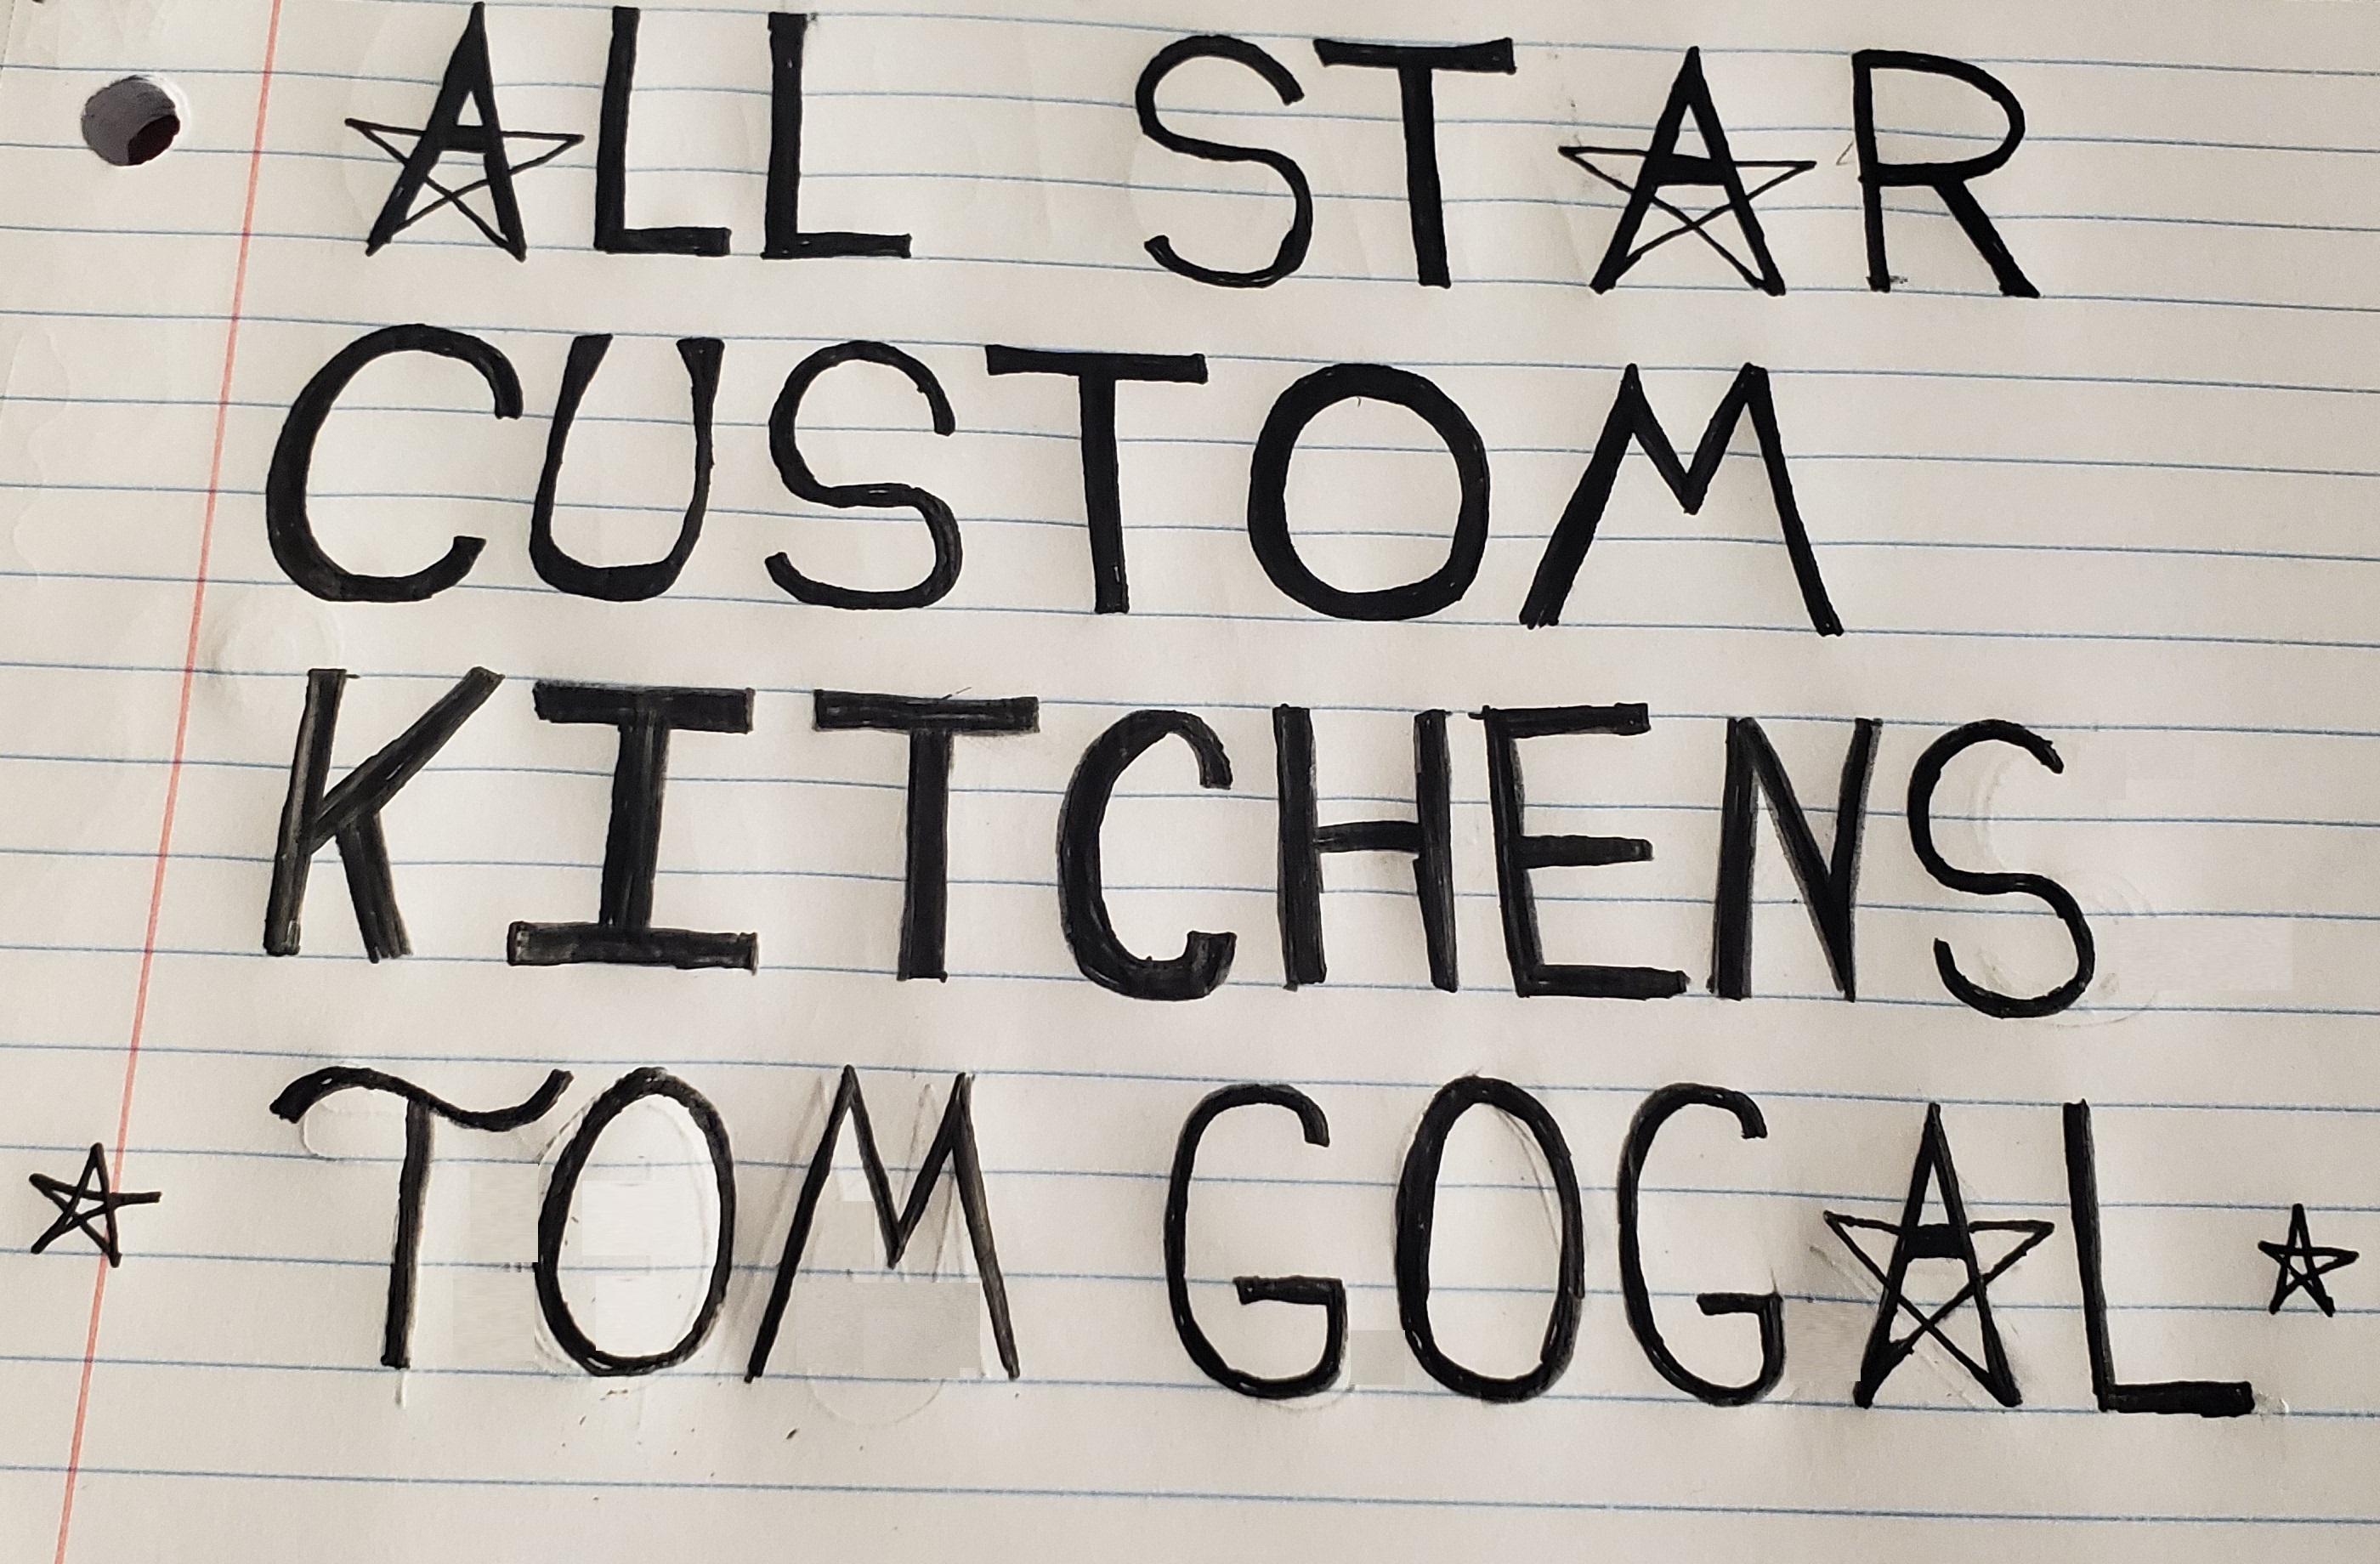 ALL STAR
CUSTOM
KITCHENS
TOM GOGAL